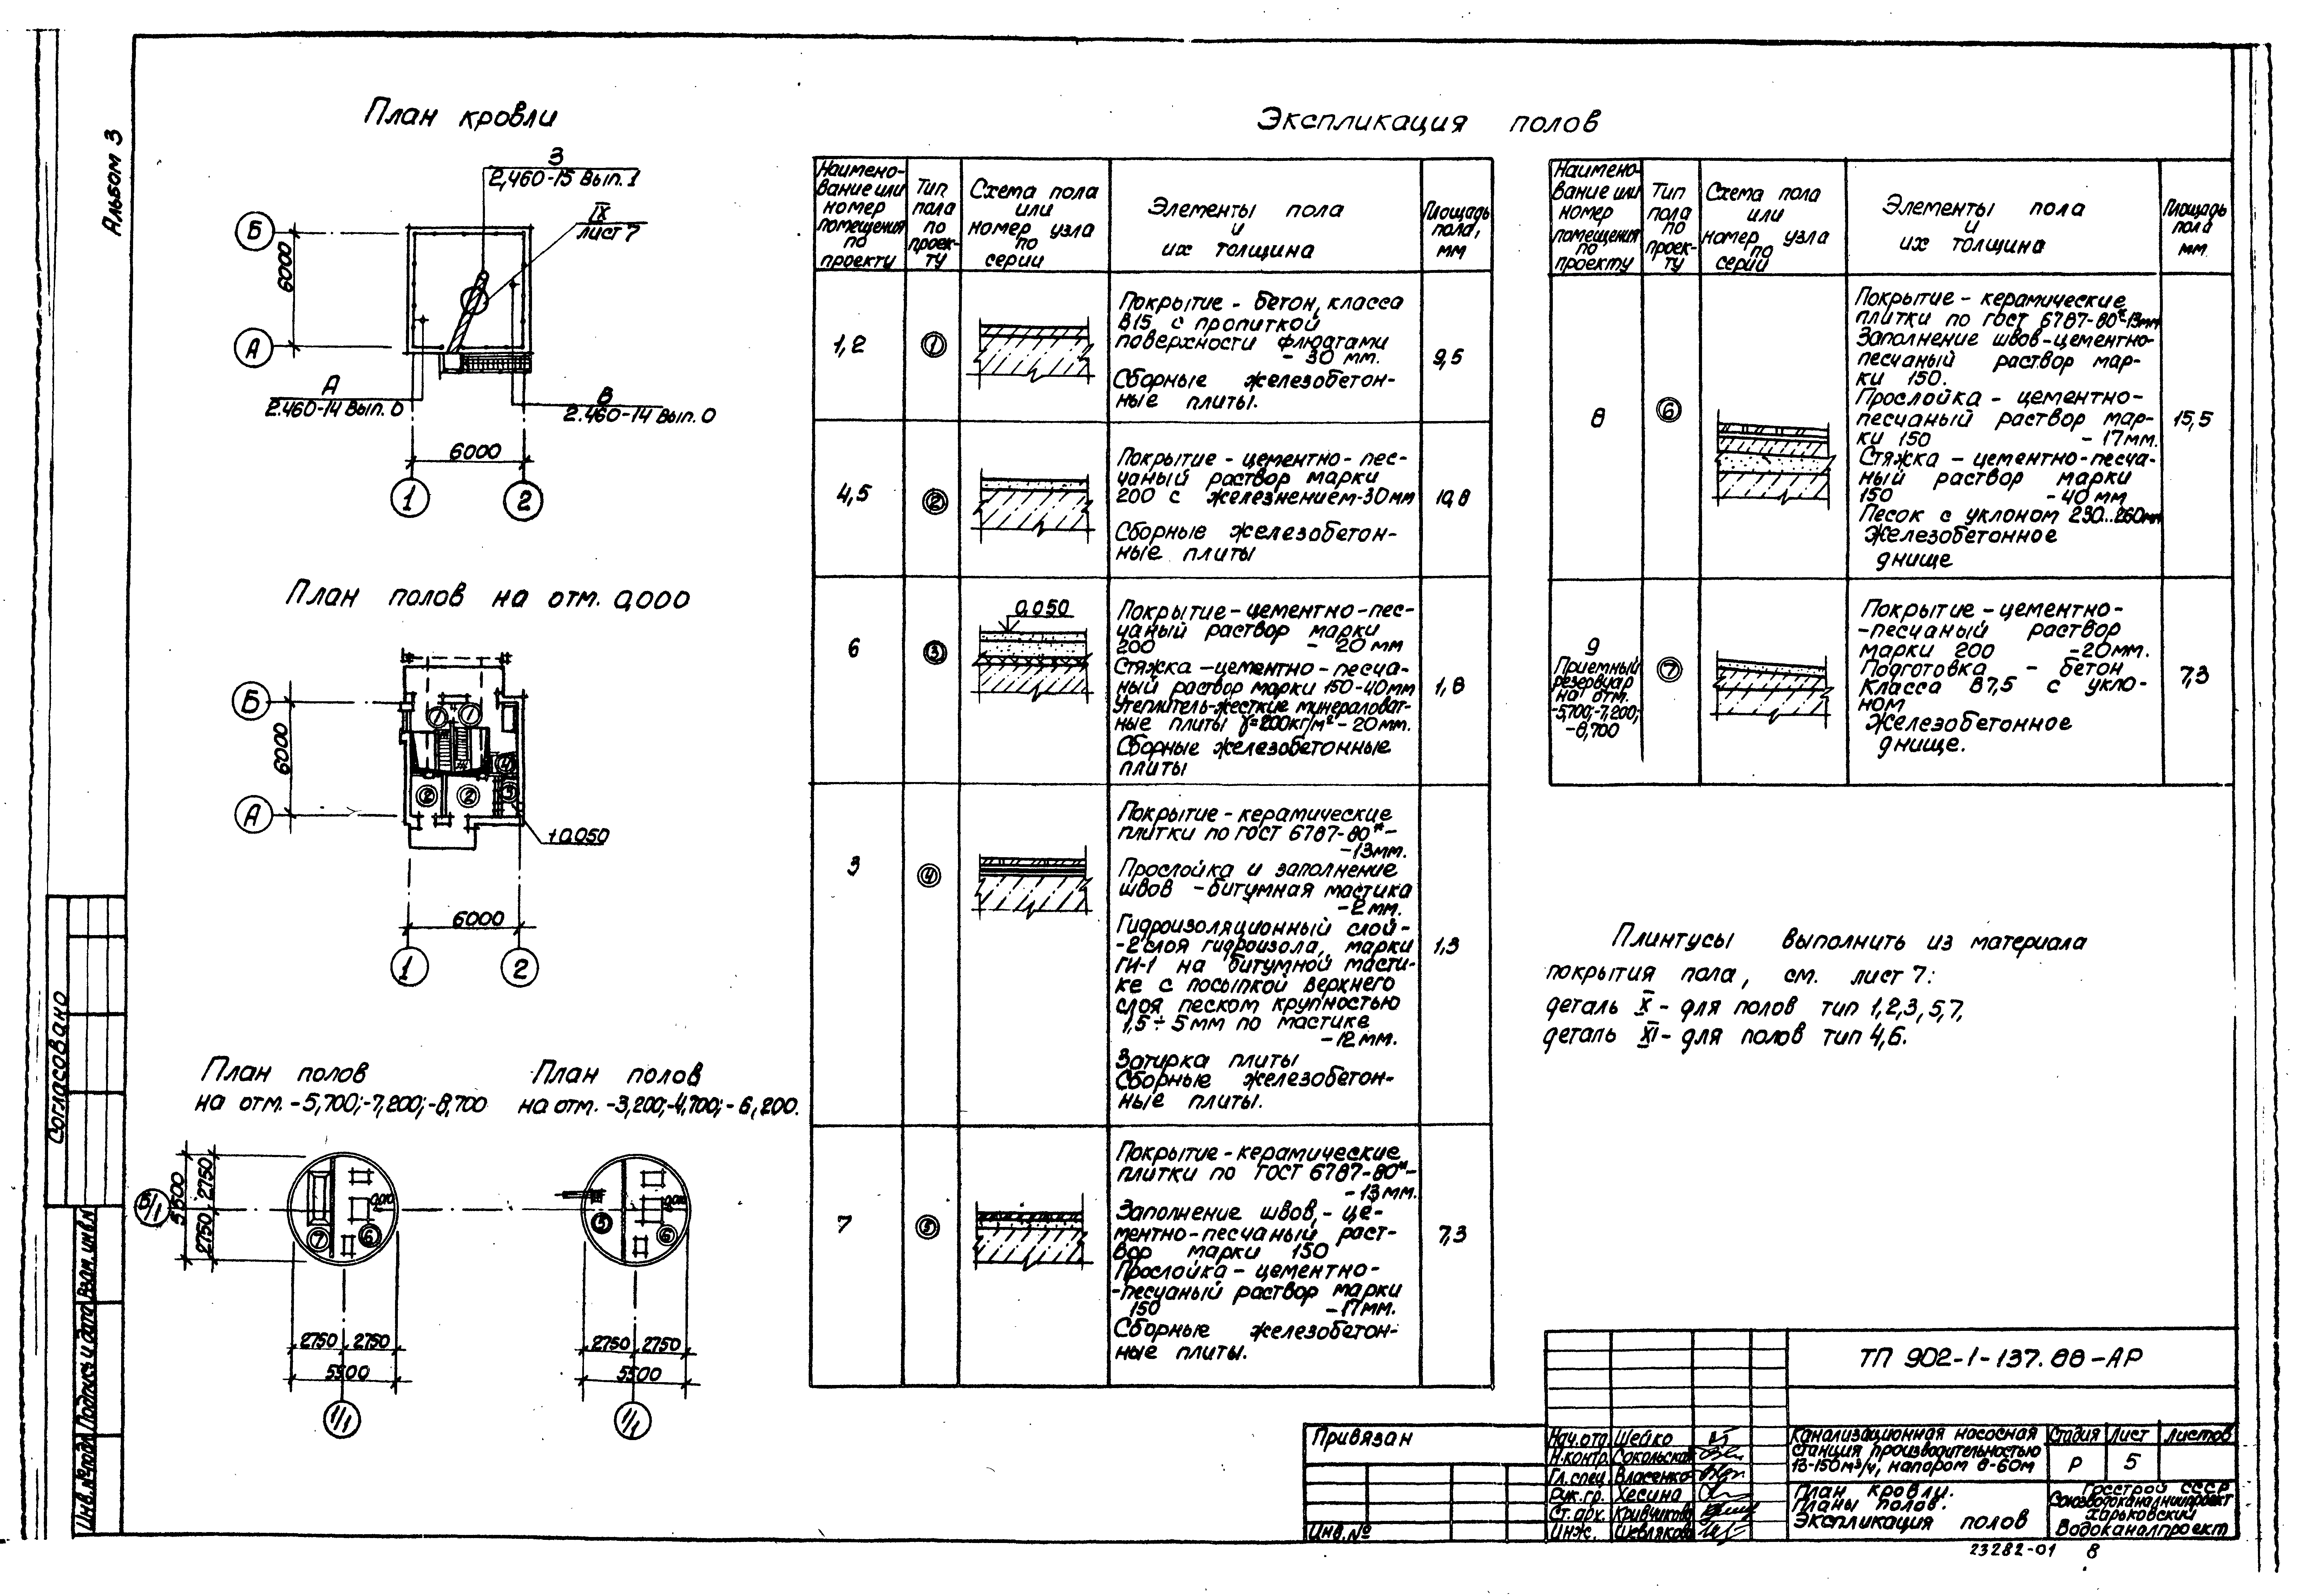 Альбом 3
План кровли
3
2,460-15 Вып. 1
IX
лист 7
Б
6000
А
А
2.460-14 Вып. 0
В
2.460-14 Вып. 0
6000
1
2
План полов на отм. 0,000
Б
6000
А
1
1
4
2
2
3
+0.050
6000
1
2
План полов
на отм. -5,700; -7,200; -8,700
План полов
на отм. -3,200; -4,700; -6,200.
Б/1
5500
2750
2750
7
6
5
6
2750
2750
5500
1/1
2750
2750
5500
1/1
Экспликация полов
Наимено-
вание или
номер
помещения
по
проекту
Тип
пола
по
проек-
ту
Схема пола
или
номер узла
по
серии
Элементы пола
и
их толщина
Площадь
пола,
мм
1,2
1
Покрытие - бетон, класса
В15 с пропиткой
поверхности флюатами
- 30 мм.
Сборные железобетон-
ные плиты.
9,5
4,5
2
Покрытие - цементно-пес-
чаный раствор марки
200 с железнением-30мм
Сборные железобетон-
ные плиты
10,8
6
3
0.050
Покрытие - цементно-пес-
чаный раствор марки
200 - 20 мм
Стяжка - цементно-песча-
ный раствор марки 150-40мм
Утеплитель-жесткие минераловат-
ные плиты γ=200кг/м² - 20мм.
Сборные железобетонные
плиты
1,8
3
4
Покрытие - керамические
плитки по ГОСТ 6787-80*-
-13мм.
Прослойка и заполнение
швов - битумная мастика
-2мм.
Гидроизоляционный слой-
-2 слоя гидроизола, марки
ГИ-1 на битумной масти-
ке с посыпкой верхнего
слоя песком крупностью
1,5÷5мм по мастике
-12мм.
Затирка плиты
Сборные железобетон-
ные плиты.
1,3
7
5
Покрытие - керамические
плитки по ГОСТ 6787-80*-
-13мм.
Заполнение швов, - це-
ментно-песчаный раст-
вор марки 150
Прослойка - цементно-
-песчаный раствор марки
150 -17мм.
Сборные железобетон-
ные плиты.
7,3
Наимено-
вание или
номер
помещения
по
проекту
Тип
пола
по
проек-
ту
Схема пола
или
номер узла
по
серии
Элементы пола
и
их толщина
Площадь
пола
мм
8
6
Покрытие - керамические
плитки по ГОСТ 6787-80*-13мм
Заполнение швов-цементно-
песчаный раствор мар-
ки 150.
Прослойка - цементно-
песчаный раствор мар-
ки 150 - 17мм.
Стяжка - цементно-песча-
ный раствор марки
150 -40мм
Песок с уклоном 230...260мм
Железобетонное
днище
15,5
9
Приемный
резервуар
на отм.
-5,700; -7,200;
-8,700
7
Покрытие - цементно-
-песчаный раствор
марки 200 -20мм.
Подготовка - бетон
класса В7,5 с укло-
ном
Железобетонное
днище.
7,3
Плинтусы выполнить из материала
покрытия пола, см. лист 7:
деталь X - для полов тип 1,2,3,5,7,
деталь XI - для полов тип 4,6.
Согласовано
Инв.№ подл.
Подпись и дата
Взам. инв.№
Привязан
Инв.№
ТП 902-1-137.88-АР
Нач.отд Шейко
Н.контр. Сокольская
Гл.спец. Власенко
Рук.гр. Хесина
Ст.арх. Кривчикова
Инж. Шевлякова
Канализационная насосная
станция производительностью
13-150м³/ч, напором 8-60м
Стадия Лист Листов
Р 5
План кровли.
Планы полов.
Экспликация полов
Госстрой СССР
Союзводоканалниипроект
Харьковский
Водоканалпроект
23282-01 8